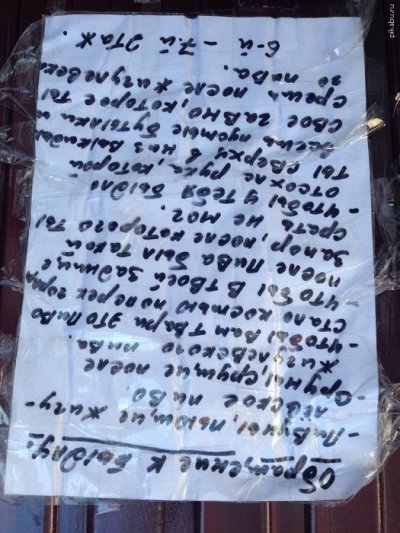 Обращение к быдлу!
- Пивуны, пьющие жигу-
левское пиво.
- Сруны, срущие после
жигулевского пива.
- Чтобы вам твари это пиво
стало костью поперек горла
- Что бы в твоей заднице
после пива был такой
запор, после которого ты
срать не мог.
- Чтобы у тебя быдло
отсохла рука, которой
ты сверху в низ выкидыв
аешь пустые бутылки и
свое гавно, которое ты
срешь после жигулевск
го пива.
6-й - 7-й этаж.
pikabu.ru